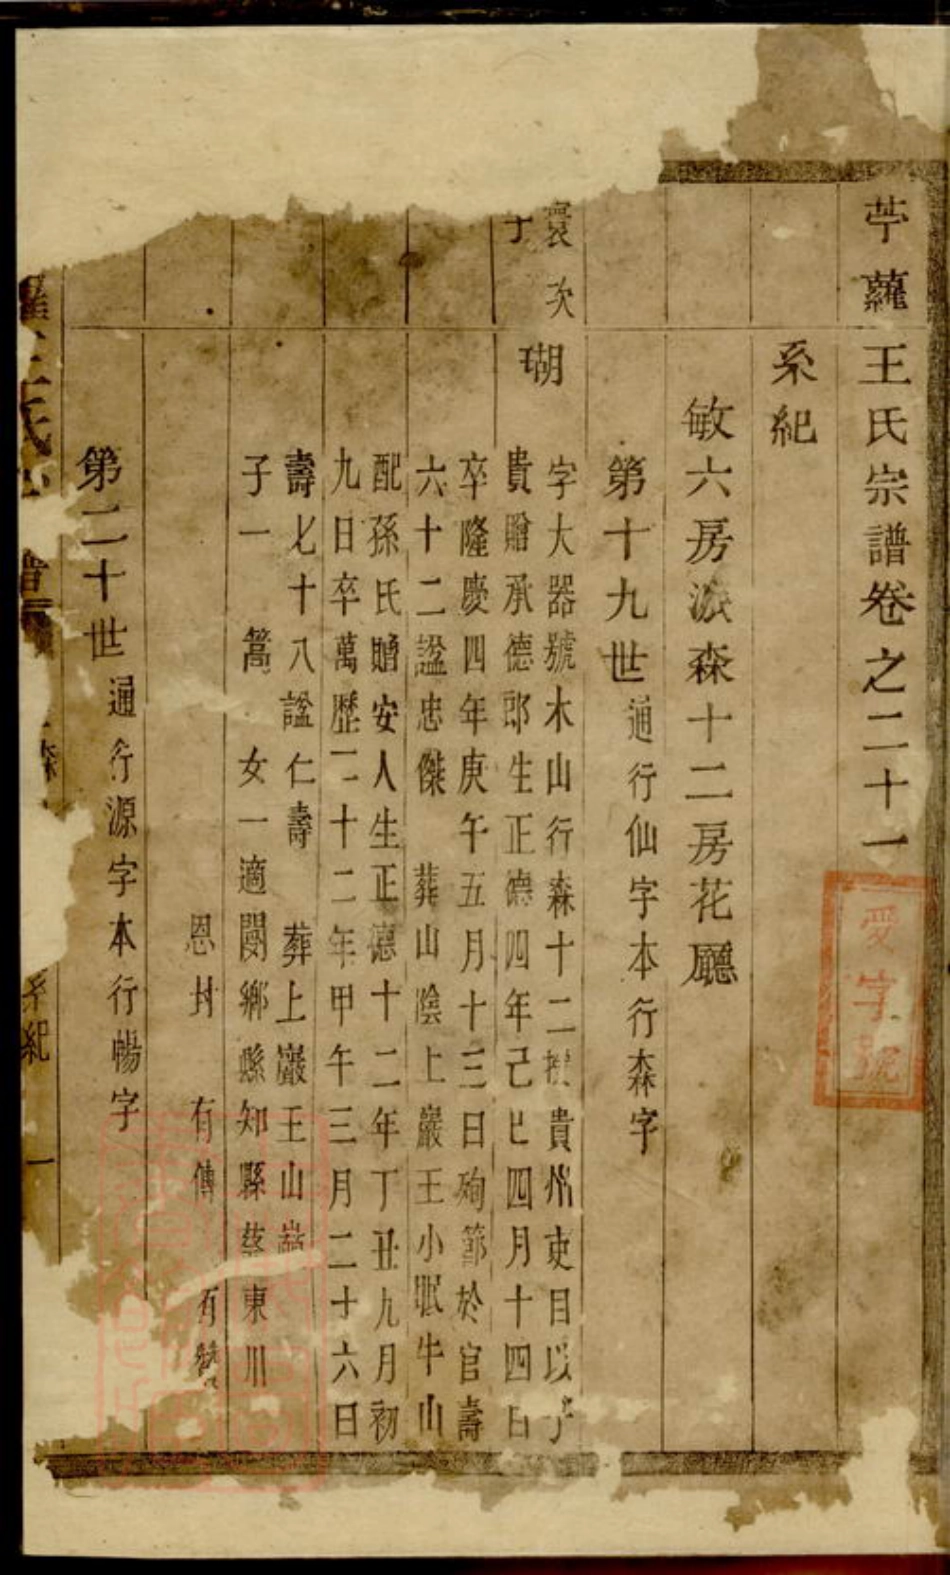 苧蘿王氏宗譜卷之二十一
受字號
系紀
敏六房派森十二房花廳
第十九世通行仙字本行森字
寰次
子
瑚
字大器號木山行森十二授貴州吏目以子
貴贈承德郎生正德四年己巳四月十四日
卒隆慶四年庚午五月十三日殉節於官壽
六十二諡忠傑 葬山陰上巖王小眠牛山
配孫氏贈安人生正德十二年丁丑九月初
九日卒萬歷二十二年甲午三月二十六日
壽七十八諡仁壽 葬上巖王山
子一 篙 女一適閿鄉縣知縣蔡東川
恩封 有傳 有
第二十世通行源字本行暢字
系紀 一